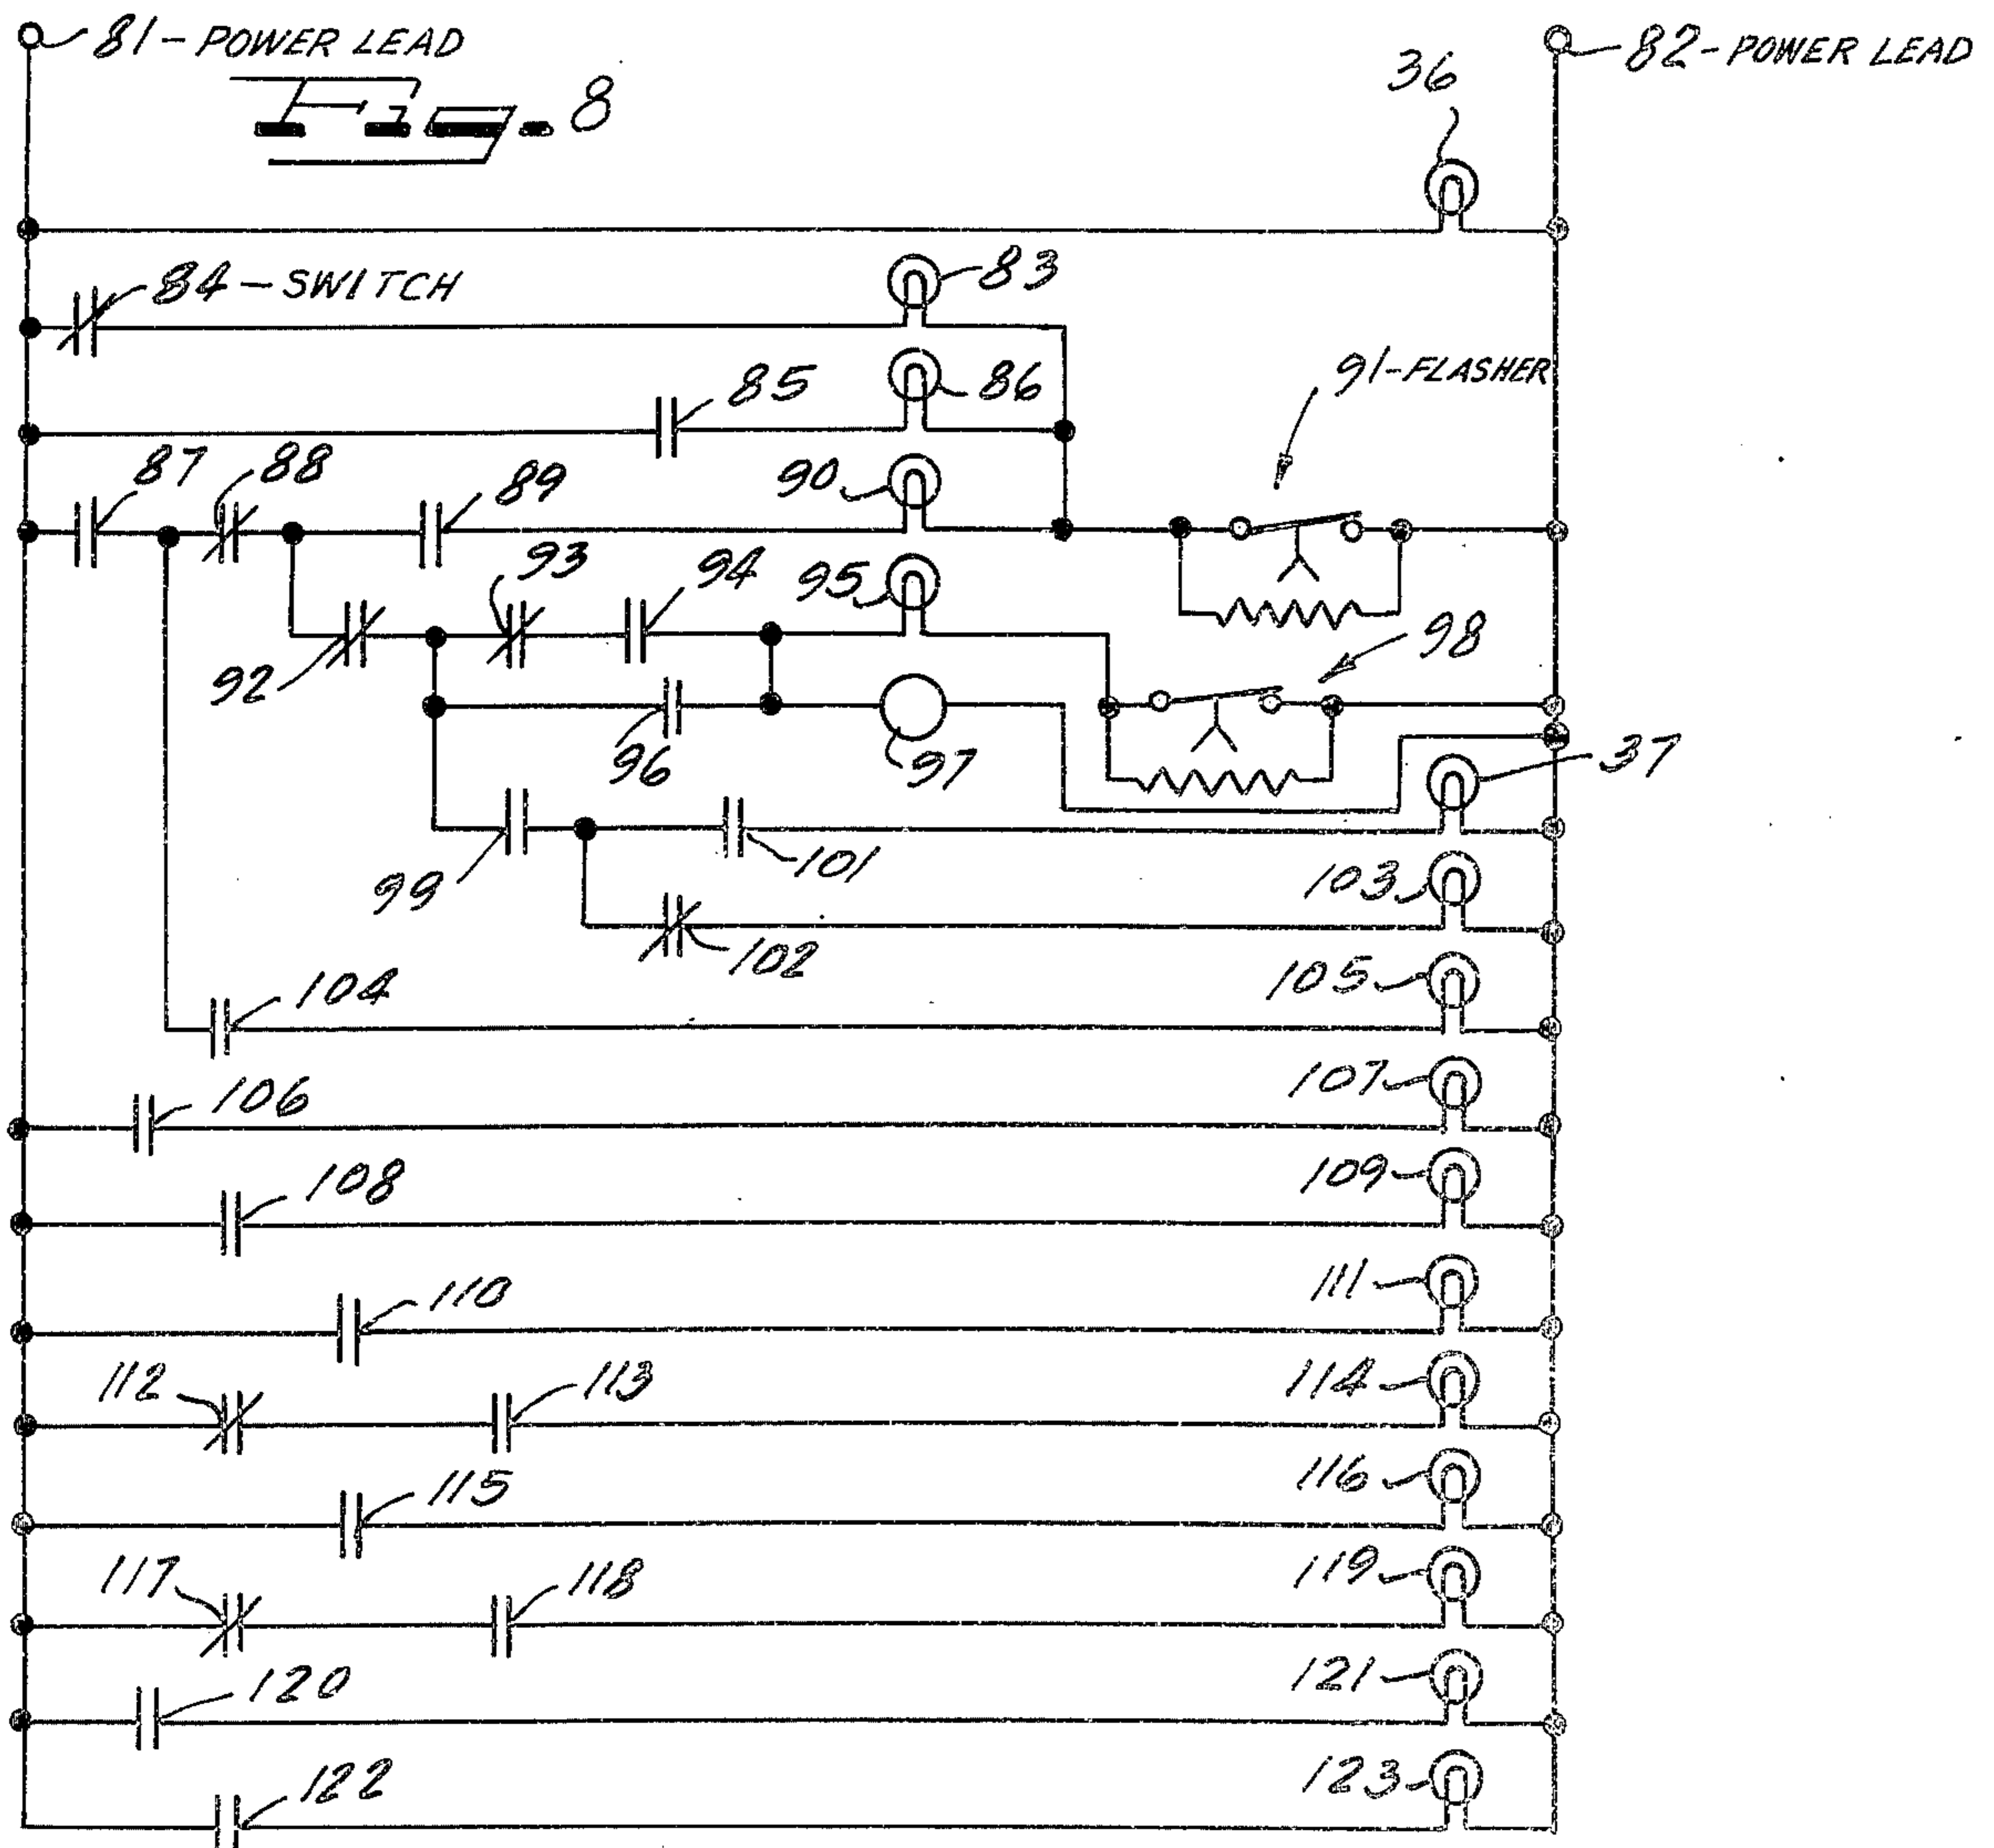 81-POWER LEAD
82-POWER LEAD
Fig-8
36
84-SWITCH
83
91-FLASHER
85
86
87
88
89
90
93
94
95
98
92
96
97
37
99
101
103
102
105
104
107
106
109
108
111
110
112
113
114
115
116
117
118
119
120
121
122
123